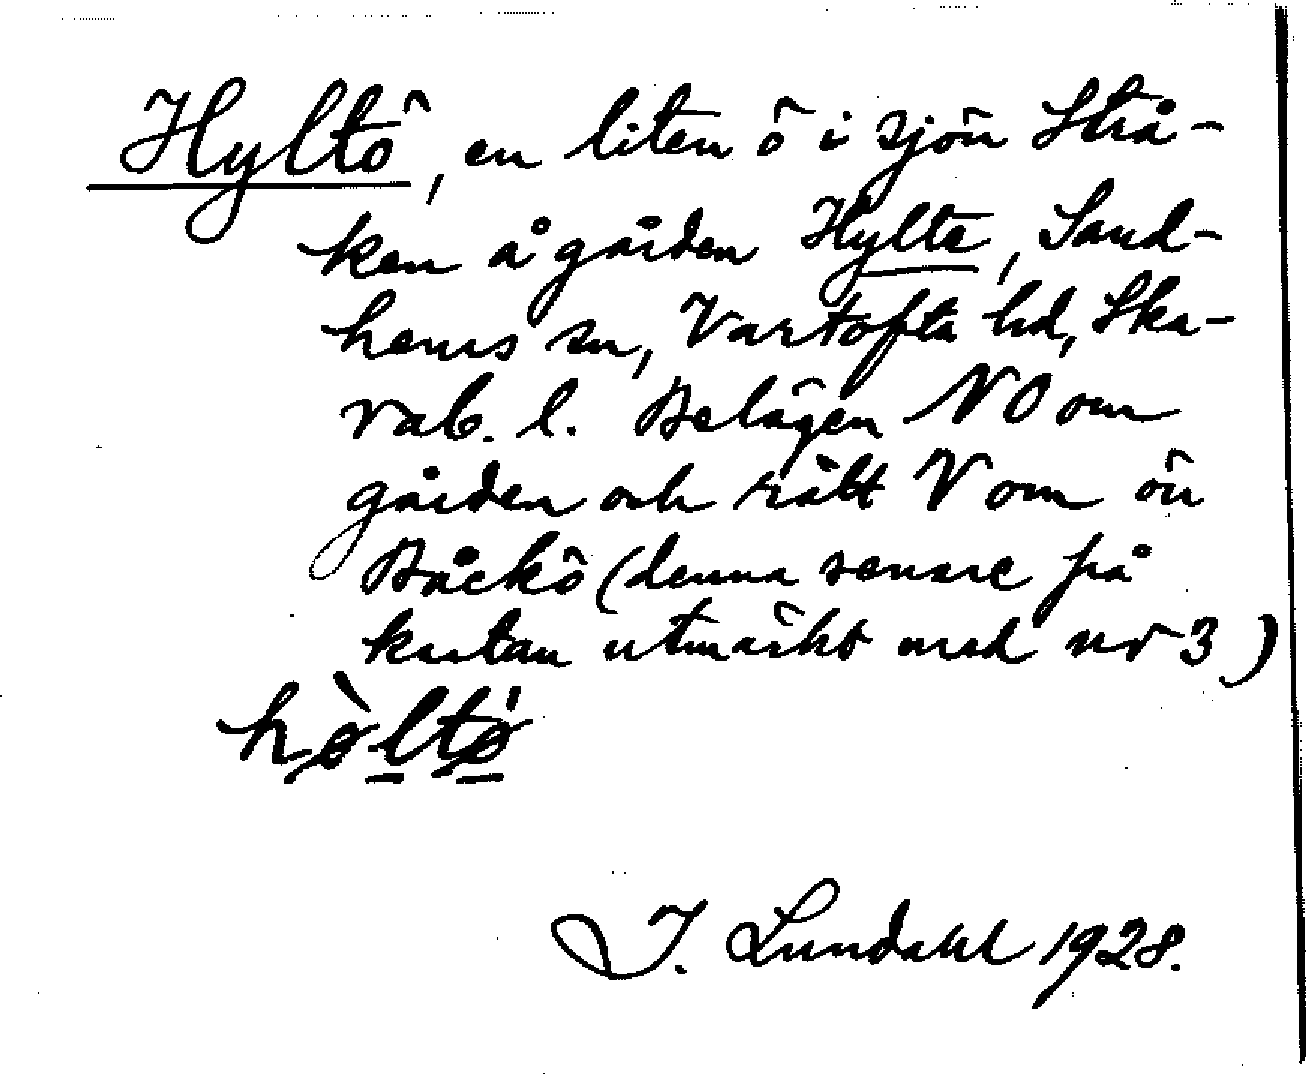 Hyltö, en liten ö i sjön Strå-
ken å gården Hylte, Sand-
hems sn, Vartofta hd, Ska-
rab. l. Belägen NO om
gården och rätt V om ön
Bäckö (denna senare på
kartan utmärkt med nr 3)
hòltö́
I. Lundahl 1928.